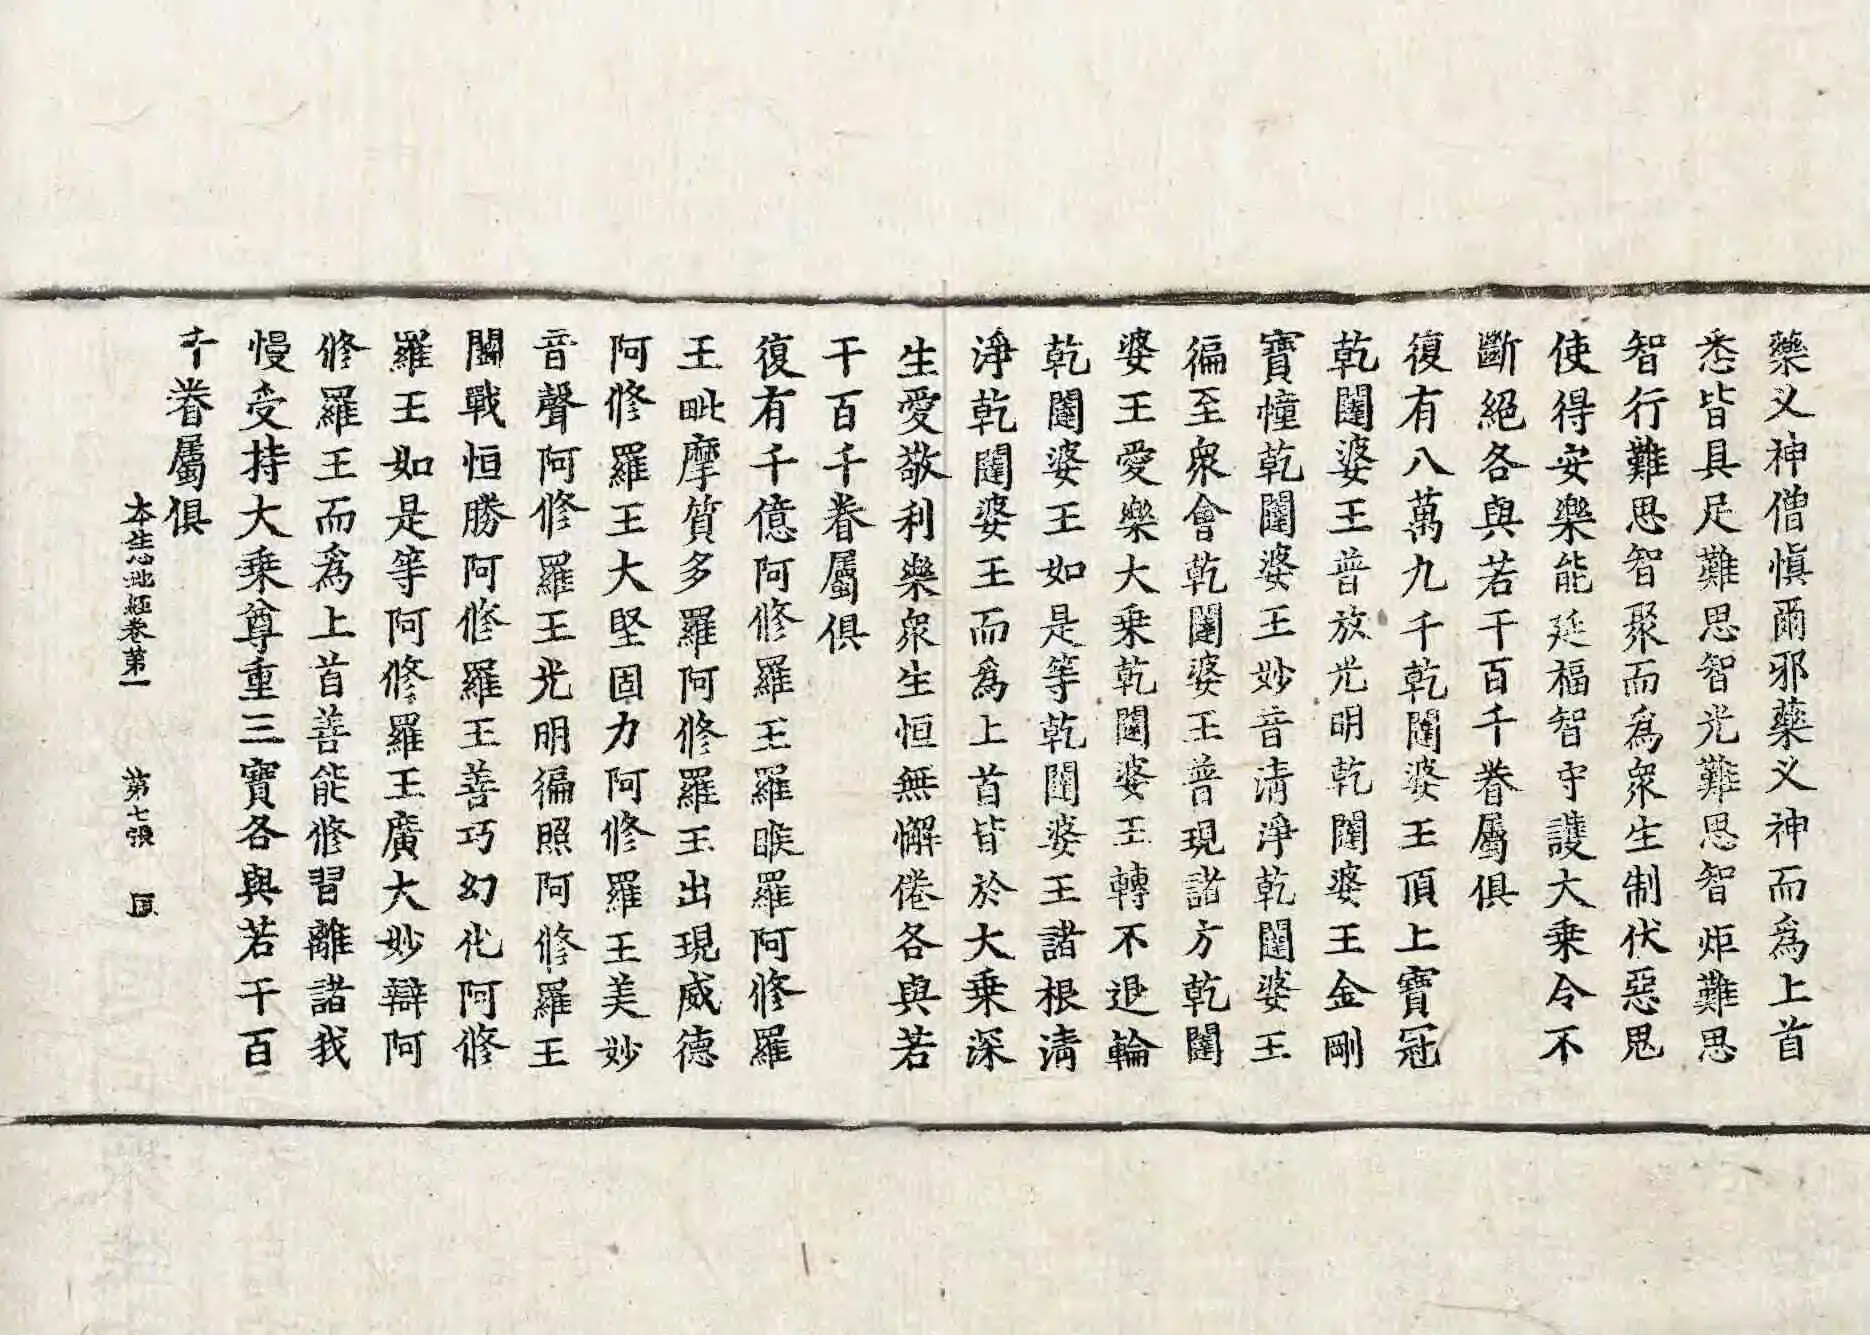 藥义神僧愼爾邪藥义神而爲上首
悉皆具足難思智光難思智炬難思
智行難思智聚而爲衆生制伏惡鬼
使得安樂能延福智守護大乘令不
斷絕各與若干百千眷屬俱
復有八萬九千乾闥婆王頂上寶冠
乾闥婆王普放光明乾闥婆王金剛
寶幢乾闥婆王妙音清淨乾闥婆王
徧至衆會乾闥婆王普現諸方乾闥
婆王愛樂大乘乾闥婆王轉不退輪
乾闥婆王如是等乾闥婆王諸根清
淨乾闥婆王而爲上首皆於大乘深
生愛敬利樂衆生恒無懈倦各與若
干百千眷屬俱
復有千億阿修羅王羅睺羅阿修羅
王毗摩質多羅阿修羅王出現威德
阿修羅王大堅固力阿修羅王美妙
音聲阿修羅王光明徧照阿修羅王
鬬戰恒勝阿修羅王善巧幻化阿修
羅王如是等阿修羅王廣大妙辯阿
修羅王而爲上首善能修習離諸我
慢受持大乘尊重三寶各與若干百
千眷屬俱
本生心地經卷第一 第七張